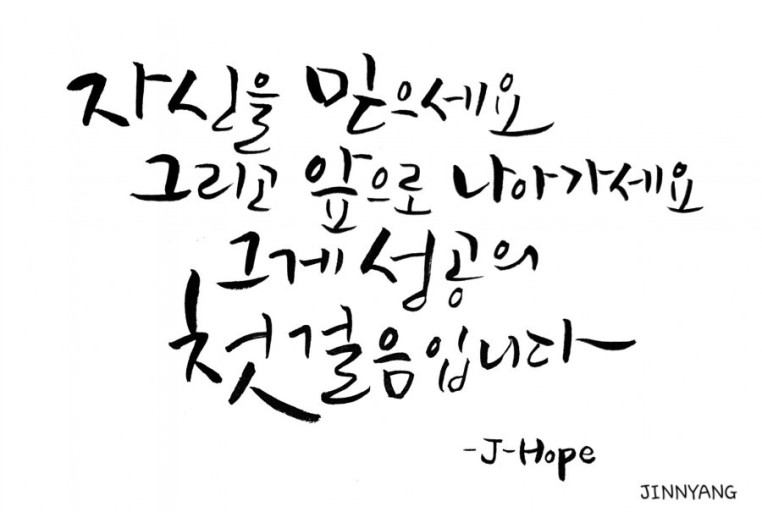 자신을 믿으세요
그리고 앞으로 나아가세요
그게 성공의
첫걸음입니다
-J-Hope
JINNYANG